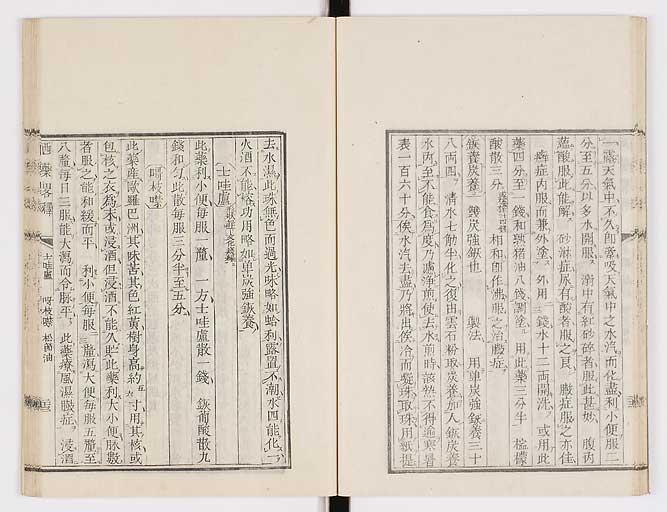 一露天氣中不久卽潮吸天氣中之水汽而化盡利小便服二
分至五分以多水開服溺中有紅砂碎者服此甚妙 腹內
蘊酸服此能解 砂淋症尿有酸者服之良 臌症服之亦佳
癬症內服而兼外塗 外用一錢水十二兩開洗 或用此
藥四分至一錢和豬油八錢調塗 用此藥三分半 檸檬
酸散三分 相和卽作沸服之治臌症
鈉養炭養 錢炭強鈉也 製法 用單炭強鈉養三十
八兩四 清水七觔半化之復由雲石粉取炭養加入鈉炭養
水內至不能食為度乃濾淨煎使去水煎時該熱不得過寒暑
表一百六十分俟水汽去盡乃將出俟冷而凝珠取珠用紙提
去水濕此珠無色而過光味略如蛤利露置不潮水四能化一
火酒不能鎔功用略如單炭強鈉養
士哇盧
此藥利小便每服一釐 一方士哇盧散一錢 鈉葡酸散九
錢和勻此散每服三分半至五分
呀枝喼
此藥產歐羅巴洲其味苦其色紅黃樹身高約五六寸用其核或
包核之衣為末或浸酒但浸酒不能久貯此藥利大小便脉數
者服之能和緩而平 利小便每服三釐瀉大便每服五釐至
八釐每日三服能大瀉而令脉平 此藥療風濕臌症 浸酒
西藥畧釋
士哇盧 呀枝喼 松節油